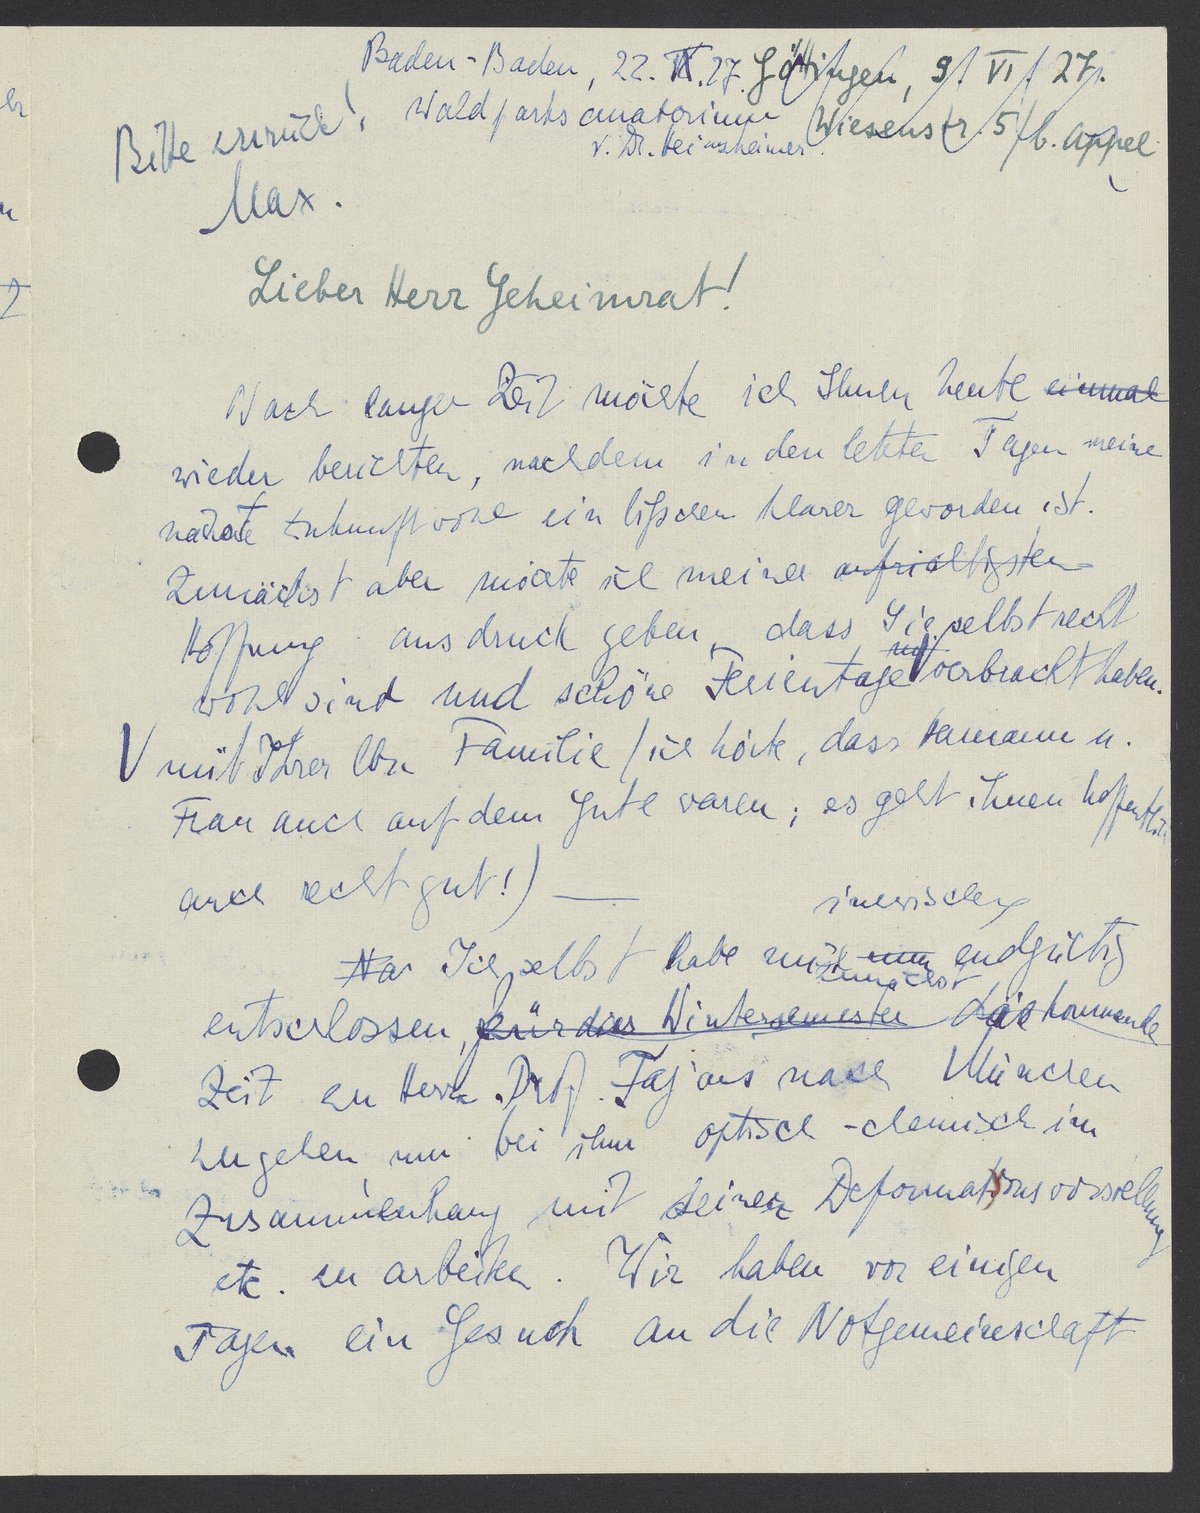 Baden-Baden, 22. IX. 27. Göttingen, 9. VI. 27.
Bitte zurück! Waldparksanatorium Wiesenstr. 5 / b. Appel
v. Dr. Heinsheimer.
Max.
Lieber Herr Geheimrat!
Nach langer Zeit möchte ich Ihnen heute einmal
wieder berichten, nachdem in den letzten Tagen meine
nächste Zukunft wohl ein bißchen klarer geworden ist.
Zunächst aber möchte ich meiner aufrichtigsten
Hoffnung ausdruck geben, dass Sie selbst recht
wohl sind und schöne Ferientage verbracht haben.
V mit Ihrer lbn Familie (ich hörte, dass Tamann u.
Frau auch auf dem Gute waren; es geht ihnen hoffentlich
auch recht gut!) —
inzwischen
Na Ich selbst habe mich nun endgültig
zunächst
entschlossen, für das Wintersemester die kommende
Zeit zu Herrn Prof. Fajans nach München
zu gehen, um bei ihm optisch-chemisch im
Zusammenhang mit seinen Deformationsvorstellung
etc. zu arbeiten. Wir haben vor einigen
Tagen ein Gesuch an die Notgemeinschaft